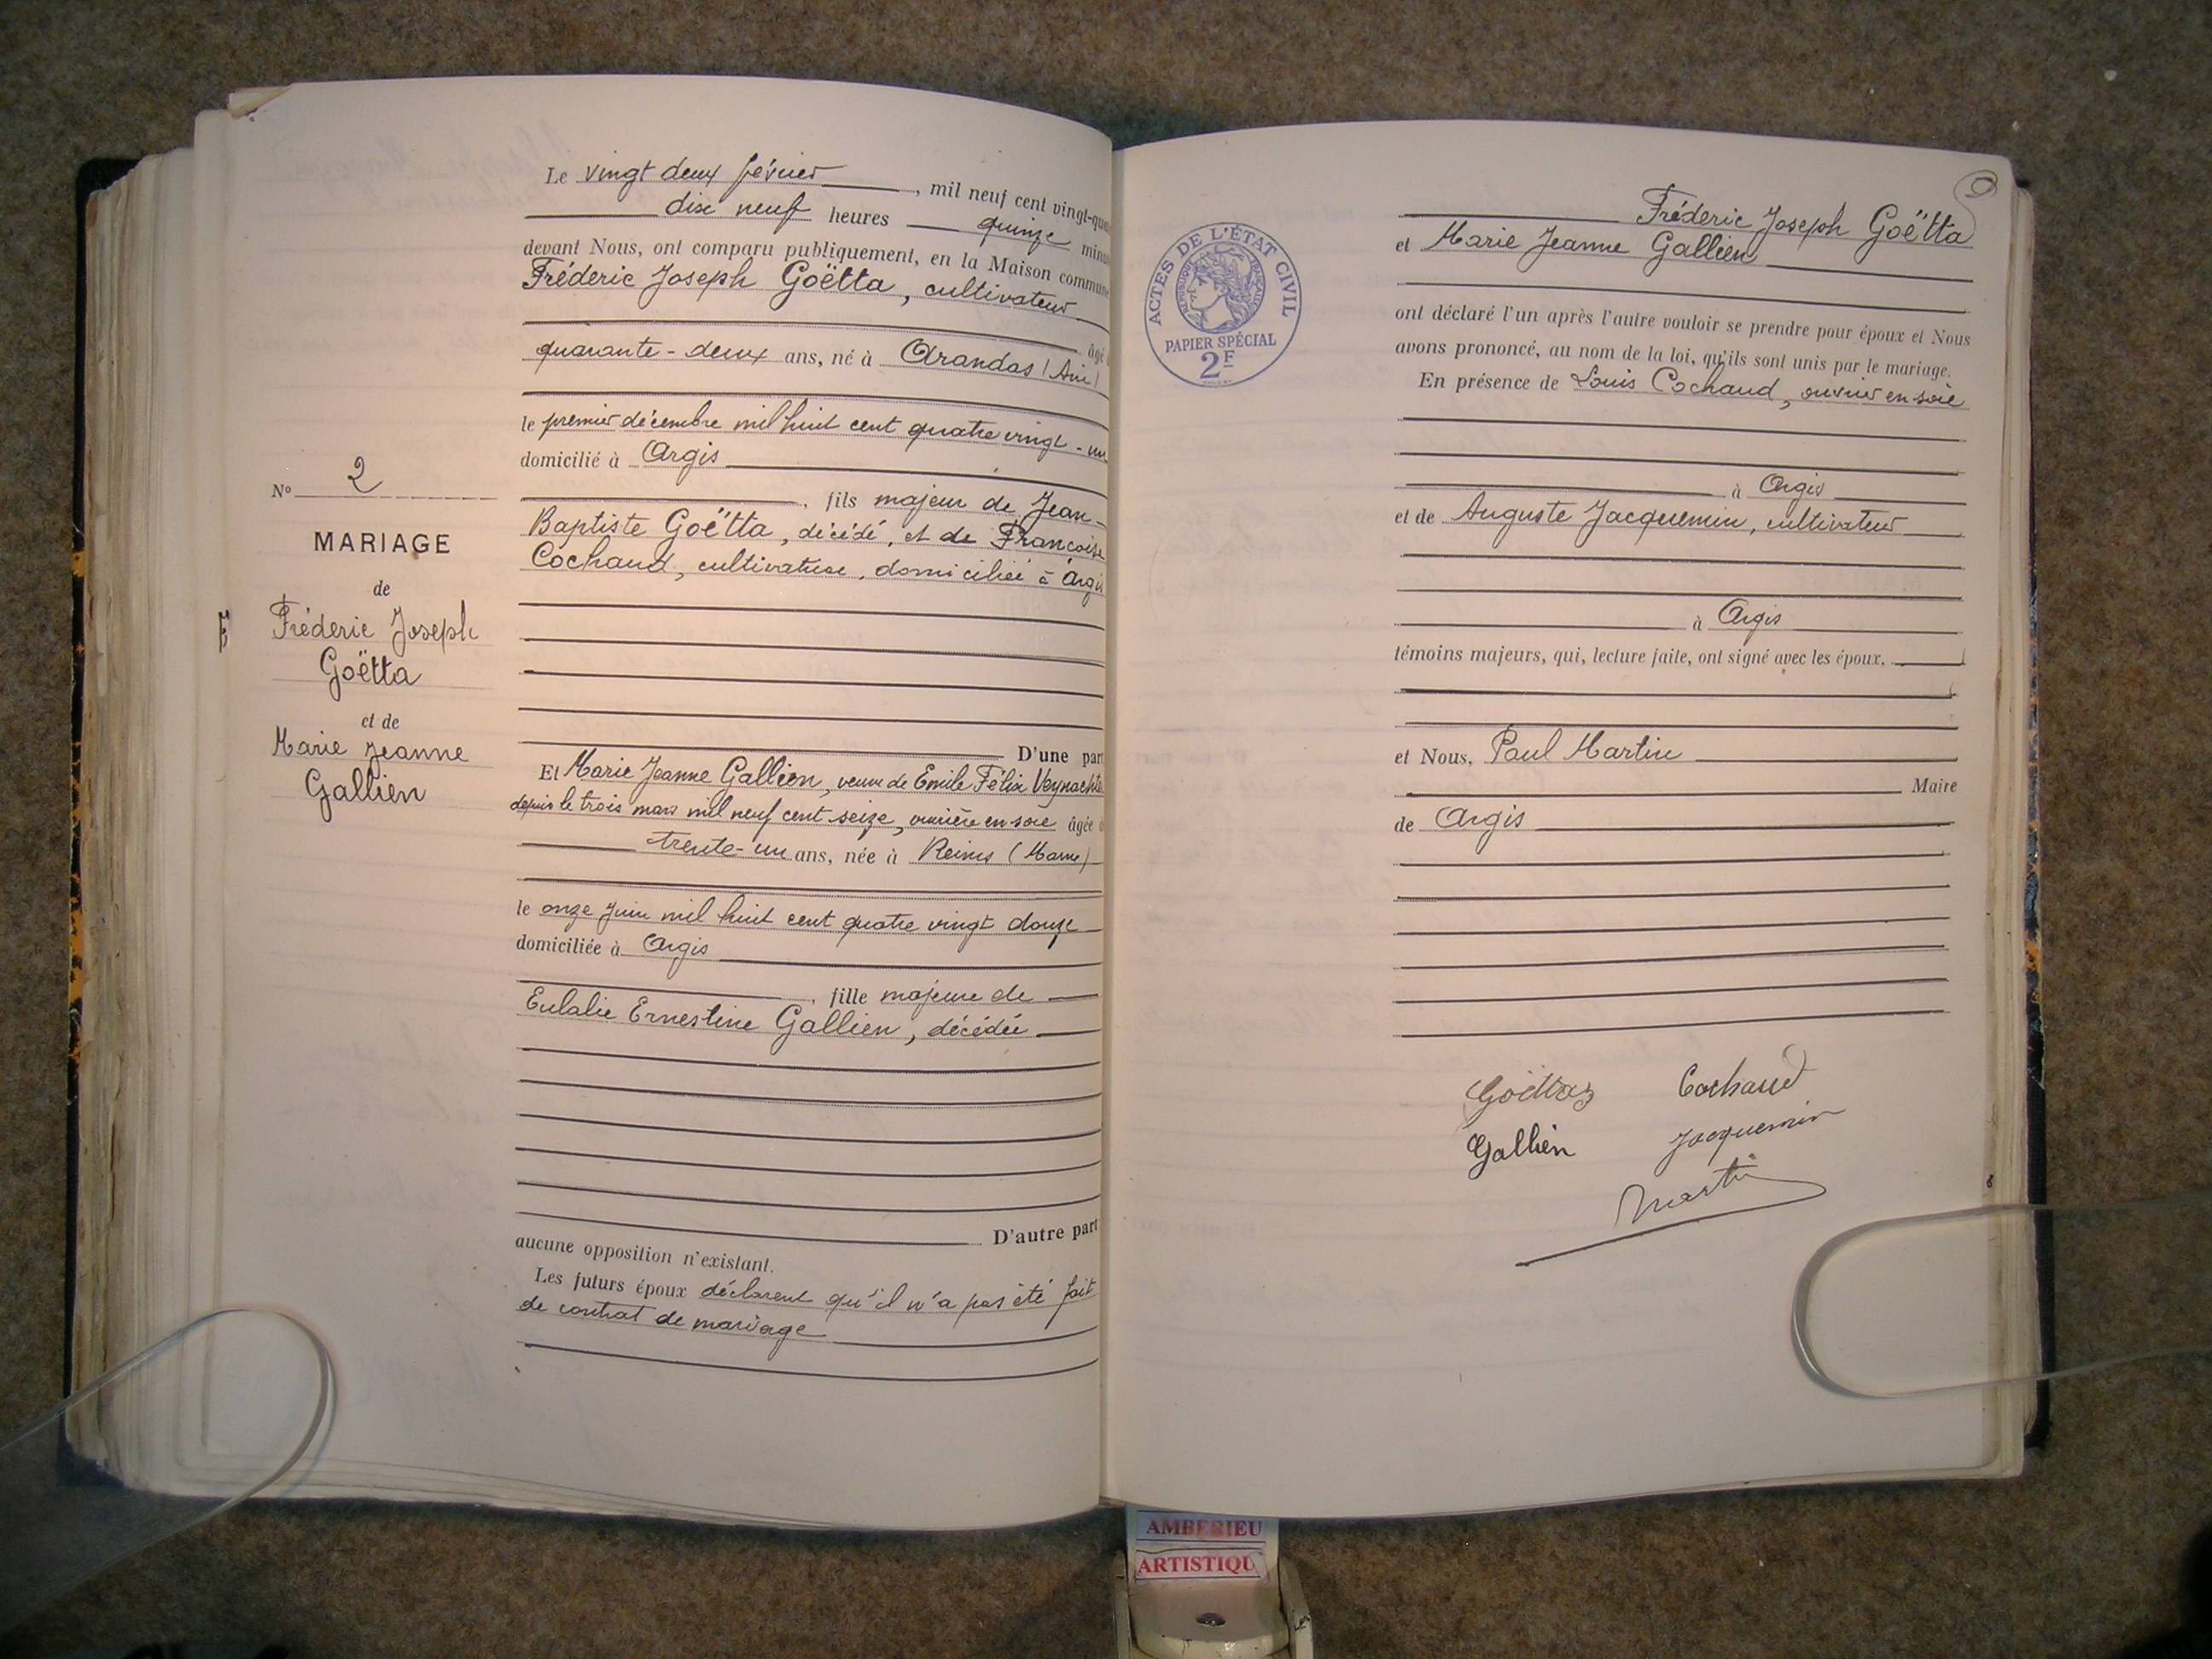 Le vingt deux février, mil neuf cent vingt-qua
dix neuf heures quinze minu
devant Nous, ont comparu publiquement, en la Maison commune
Fréderic Joseph Goëtta, cultivateur
âgé d
quarante-deux ans, né à Arandas (Ain)
le premier décembre mil huit cent quatre vingt-un
domicilié à Argis
, fils majeur de Jean-
Baptiste Goëtta, décédé, et de Françoise
Cochaud, cultivatrice, domiciliée à Argis
D'une part
Et Marie Jeanne Gallien, veuve de Emile Félix
depuis le trois mars mil neuf cent seize, ouvrière en soie âgée d
trente-un ans, née à Reims (Marne)
le onze Juin mil huit cent quatre vingt douze
domiciliée à Argis
, fille majeure de
Eulalie Ernestine Gallien, décédée
D'autre part
aucune opposition n'existant.
Les futurs époux déclarent qu'il n'a pas été fait
de contrat de mariage
No 2
MARIAGE
de
Fréderic Joseph
Goëtta
et de
Marie Jeanne
Gallien
ACTES DE L'ÉTAT CIVIL
RÉPUBLIQUE FRANÇAISE
PAPIER SPÉCIAL
2F
Fréderic Joseph Goëtta
et Marie Jeanne Gallien
ont déclaré l'un après l'autre vouloir se prendre pour époux et Nous
avons prononcé, au nom de la loi, qu'ils sont unis par le mariage.
En présence de Louis Cochaud, ouvrier en soie
à Argis
et de Auguste Jacquemin, cultivateur
à Argis
témoins majeurs, qui, lecture faite, ont signé avec les époux.
et Nous, Paul Martin
Maire
de Argis
Goëttaz Cochaud
Gallien Jacquemin
Martin
AMBERIEU
ARTISTIQU